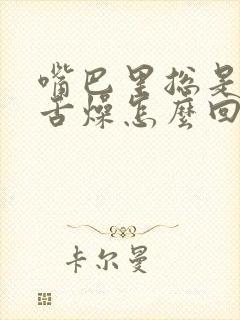 嘴巴里总是
舌燥怎麼回
卡尔曼